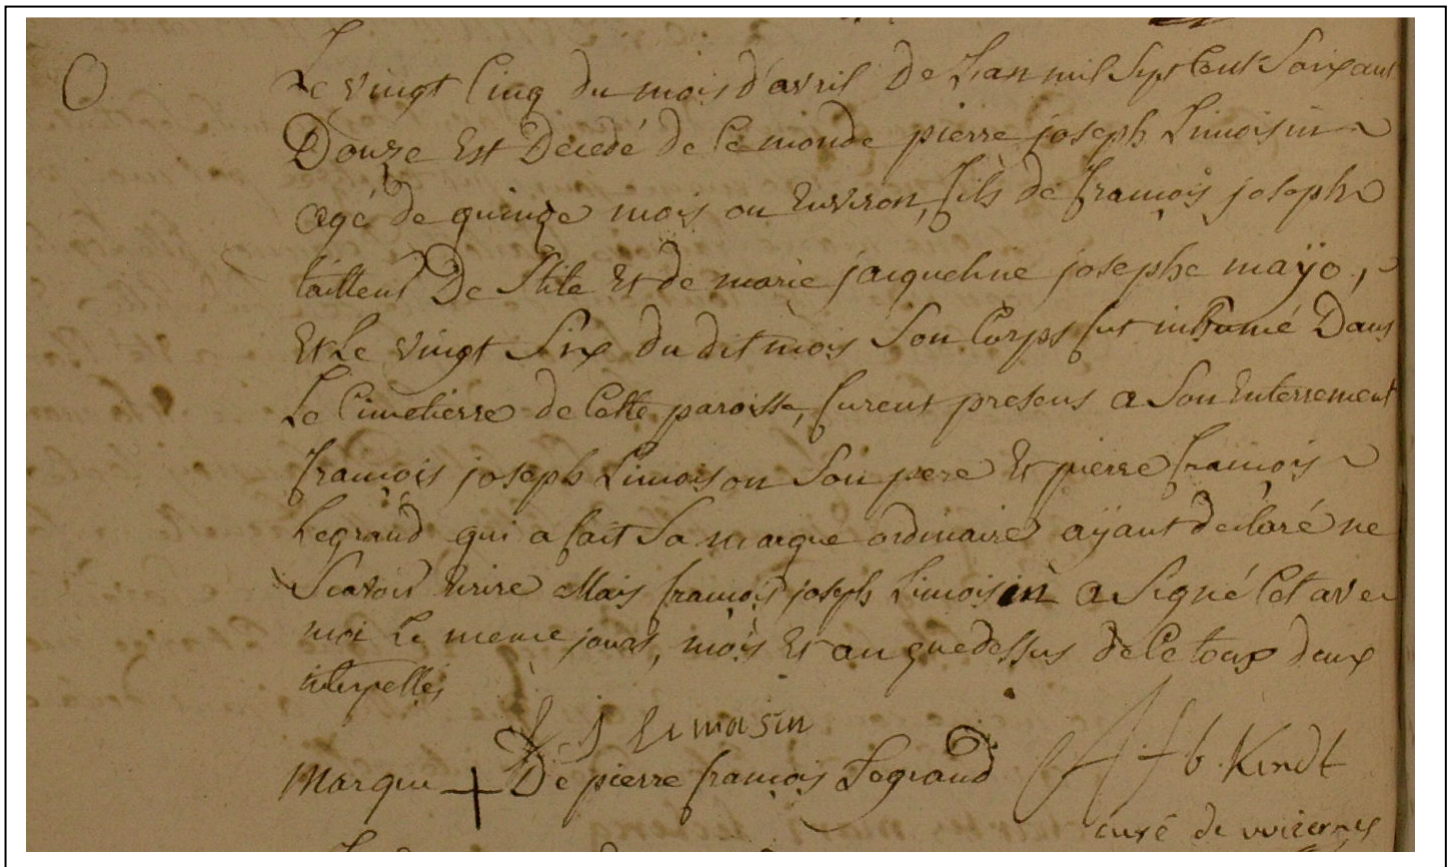 Le vingt Cinq du mois d'avril de L'an mil Sept Cent Soixant
Douze Est Decedé de Ce monde pierre joseph Limoisin
agé de quinze mois ou Environ, fils de françois joseph
tailleur De Stile Et de marie jacqueline josephe mayo,
Et Le vingt Six du dit mois Son Corps fut inhumé Dans
Le Cimetierre de Cette paroisse, furent presens a Son Enterrement
françois joseph Limoison Son pere Et pierre françois
Legrand qui a fait Sa marque ordinaire aÿant declaré ne
Scavoir Ecrire Mais françois joseph Limoisin a Signé Cet avec
moi Le meme jours, mois Et an que dessus de Ce tous deux
interpellés
f j Limoisin
Marque + De pierre françois Legrand
f b. Kindt
curé de wizernes